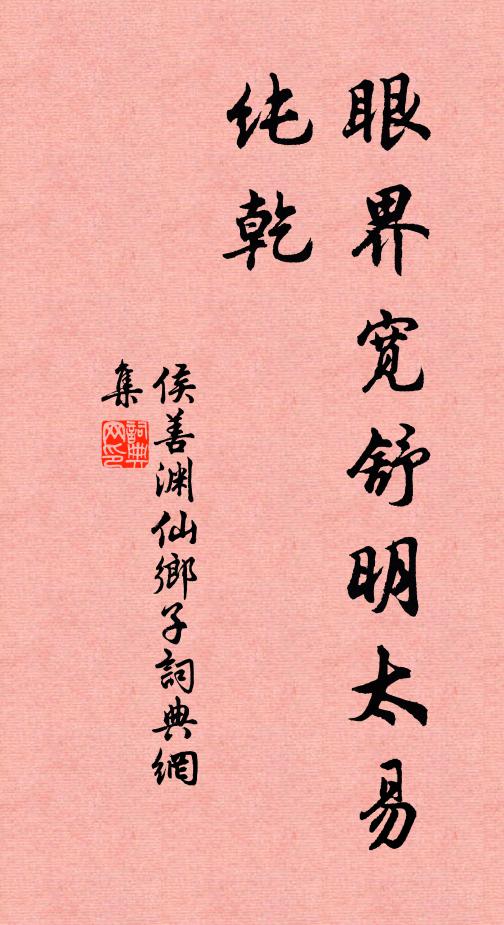 眼界宽舒明太易
纯乾
侯善渊仙鄉子詞典網
集
詞典
网印